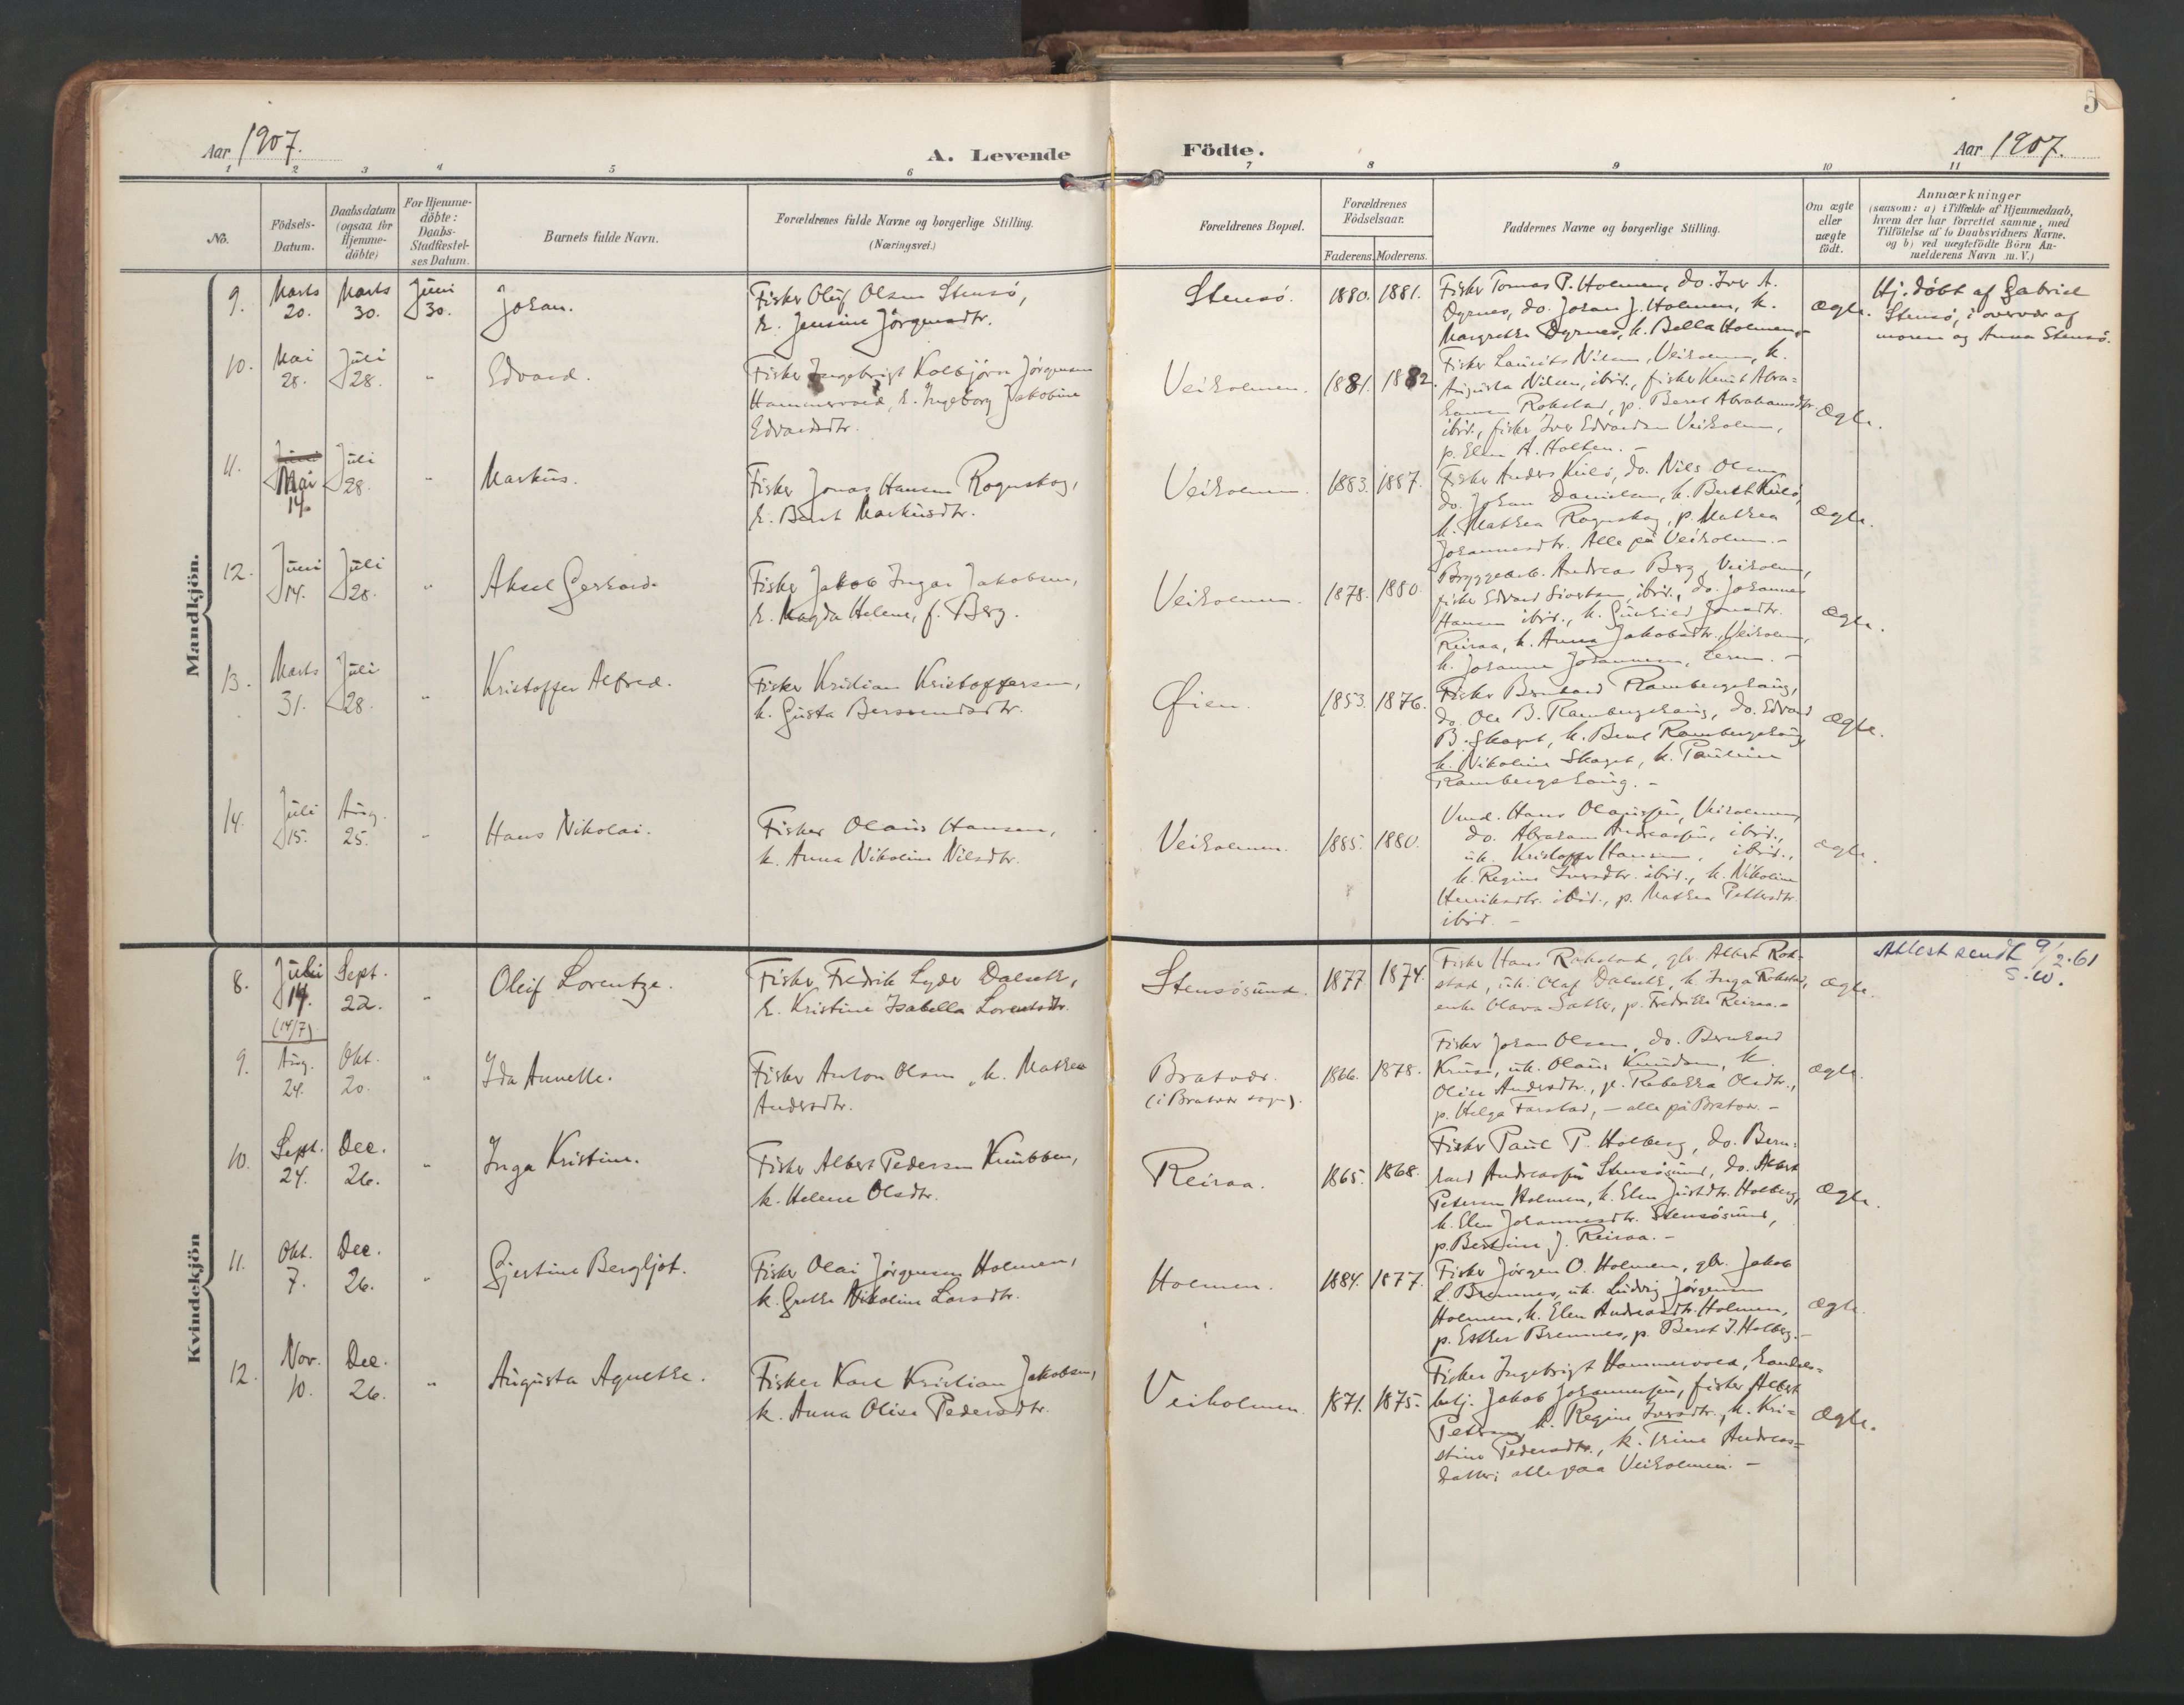 5
Aar 1907. A. Levende Födte. Aar 1907.
1 2 3 4 5 6 7 8 9 10 11
No.
Födsels-
Datum.
Daabsdatum
(ogsaa for
Hjemme-
döbte)
For Hjemme-
döbte:
Daabs-
Stadfæstel-
ses Datum.
Barnets fulde Navn.
Forældrenes fulde Navne og borgerlige Stilling.
(Næringsvei.)
Forældrenes Bopæl.
Forældrenes
Födselsaar.
Faderens. Moderens.
Faddernes Navne og borgerlige Stilling.
Om ægte
eller
uægte
födt.
Anmærkninger
(saasom: a) i Tilfælde af Hjemmedaab,
hvem der har forrettet samme, med
Tilföielse af to Daabsvidners Navne.
og b) ved uægtefödte Börn An-
melderens Navn m. V.)
Mandkjön.
9. Marts 20. Marts 30. Juni 30. Johan.
Fisker Oluf Olsen Stensö,
k. Jensine Jörgensdtr.
Stensö. 1880. 1881.
Fisker Tomas P. Holmen, do. Iver A.
Dyrnes, do. Johan J. Holmen, k.
Margrethe Dyrnes, k. Bella Holmen.-
Ægte.
Hj. döbt af Gabriel
Stensö, i overvær af
moren og Anna Stensö.
10. Mai 28. Juli 28. " Edvard.
Fisker Ingebrigt Kolbjörn Jörgensen
Hammervold, k. Ingeborg Jakobine
Edvardsdtr.
Veiholmen. 1881. 1882.
Fisker Laurits Nilsen, Veiholmen, k.
Augusta Nilsen, ibid., fisker Knut Abra=
hamsen Rokstad, p. Beret Abrahamsdtr.
ibid., fisker Iver Edvardsen Veiholmen,
p. Elen A. Holten. -
Ægte.
11. Mai 14. Juli 28. " Markus.
Fisker Jonas Hansen Rognskog,
k. Berit Markusdtr.
Veiholmen. 1883. 1887.
Fisker Anders Kulö, do. Nils Olsen,
do. Johan Danielsen, k. Berit Kulö,
k. Mathea Rognskog, p. Mathea
Johannesdtr. Alle på Veiholmen.-
Ægte.
12. Juni 14. Juli 28. " Aksel Gerhard.
Fisker Jakob Ingar Jakobsen,
k. Magda Helene, f. Berg.
Veiholmen. 1878. 1880.
Bryggearb. Andreas Berg, Veiholmen,
fisker Edvard Sivertsen, ibid., do. Johannes
Hansen ibid., k. Gunhild Jonsdtr.
Reiraa, k. Anna Jakobsdtr., Veiholmen,
k. Johanne Johannesen, -
Ægte.
13. Marts 31. Juli 28. " Kristoffer Alfred.
Fisker Kristian Kristoffersen,
k. Gusta Berntsdtr.
Öien. 1853. 1876.
Fisker Bernhard Rambergshaug,
do. Ole B. Rambergshaug, do. Edvard
B. Skaget, k. Berit Rambergshaug,
k. Nikoline Skaget, k. Pauline
Rambergshaug. -
Ægte.
14. Juli 15. Aug. 25. " Hans Nikolai.
Fisker Olaus Hansen,
k. Anna Nikoline Nilsdtr.
Veiholmen. 1885. 1880.
Hans Olaussen, Veiholmen,
do. Abraham Andreassen, ibid.,
uk. Kristoffer Hansen, ibid.,
k. Regine Iversdtr. ibid., k. Nikoline
Henriksdtr. ibid., p. Mathea Pettersdtr.
ibid. -
Ægte.
Kvindekjön
8. Juli 14. (14/7) Sept. 22. " Oleif Lorentze.
Fisker Fredrik Lyder Dalseth,
k. Kristine Isabella Lorentsdtr.
Stensösund. 1877. 1874.
Fisker Hans Rokstad, gbr. Albert Rok-
stad, uk. Olaf Dalseth, k. Inga Rokstad,
enke Olava Sæther, p. Fredrikke Reiraa.-
Ægte.
Attest sendt 9/2.61
S.W.
9. Aug. 24. Okt. 20. " Ida Annette.
Fisker Anton Olsen, k. Mathea
Andersdtr.
Bratvær.
(i Bratvær sogn).
1866. 1878.
Fisker Johan Olsen, do. Bernhard
Kruse, uk. Olaus Knudsen, k.
Olise Andersdtr., p. Rebekka Olsdtr.,
p. Helga Farstad, - alle på Bratvær.-
Ægte.
10. Sept. 24. Dec. 26. " Inga Kristine.
Fisker Albert Pedersen Knubben,
k. Helene Olsdtr.
Reiraa. 1865. 1868.
Fisker Paul P. Holberg, do. Bern=
hard Andreassen Stensösund, do. Albert
Petersen Holmen, k. Elen Justdtr. Holberg,
k. Elen Johannesdtr. Stensösund,
p. Bertine J. Reiraa. -
Ægte.
11. Okt. 7. Dec. 26. " Gjertine Bergljot.
Fisker Olai Jörgensen Holmen,
k. Grethe Nikoline Larsdtr.
Holmen. 1884. 1877.
Fisker Jörgen O. Holmen, gbr. Jakob
L. Bremnes, uk. Ludvig Jörgensen
Holmen, k. Elen Andreasdtr. Holmen,
p. Esther Bremnes, p. Beret J. Holberg.-
Ægte.
12. Nov. 10. Dec. 26. " Augusta Agnethe.
Fisker Karl Kristian Jakobsen,
k. Anna Olise Pedersdtr.
Veiholmen. 1871. 1875.
Fisker Ingebrigt Hammervold, handels=
betj. Jakob Johannessen, fisker Albert
Petersen, k. Regine Iversdtr., k. Kri=
stine Pedersdtr., k. Trine Andreas=
datter; alle paa Veiholmen. -
Ægte.